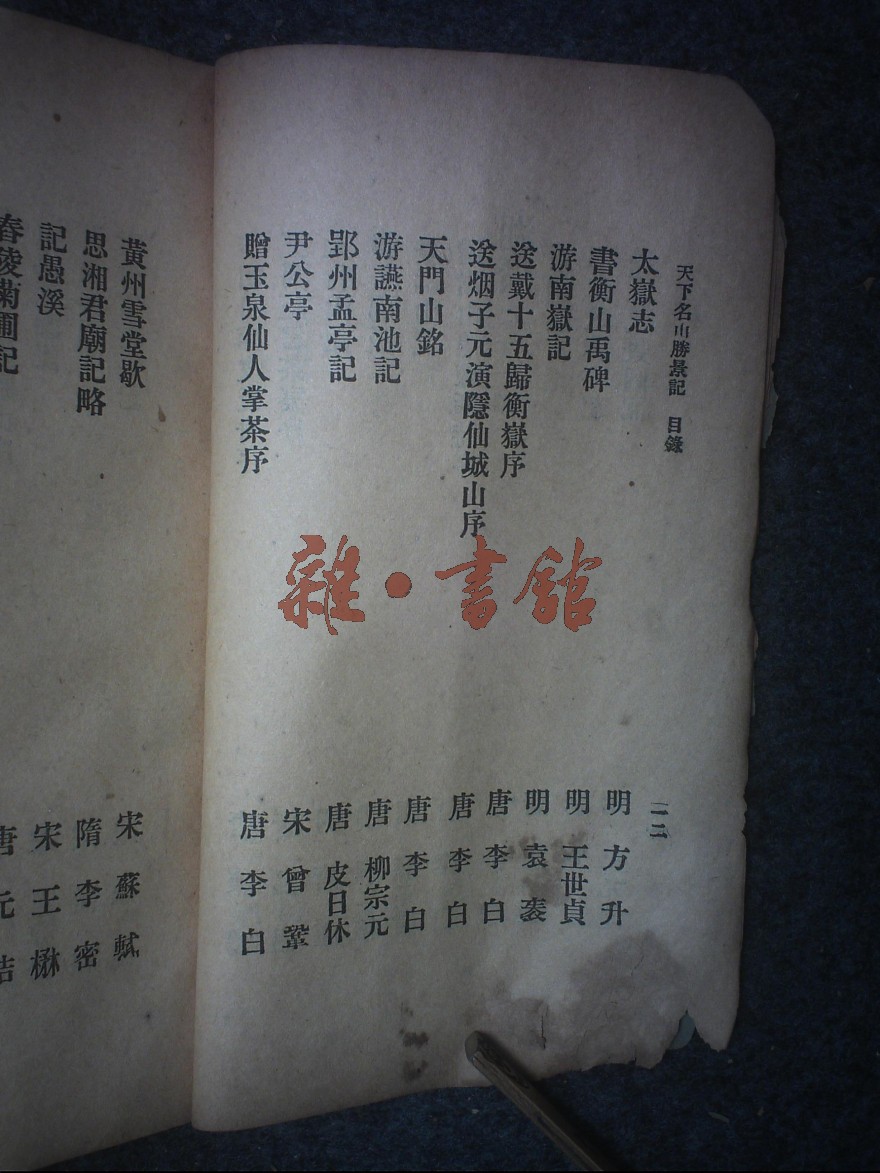 天下名山勝景記 目錄 一二
太嶽志 明 方升
書衡山禹碑 明 王世貞
游南嶽記 明 袁袠
送戴十五歸衡嶽序 唐 李白
送烟子元演隱仙城山序 唐 李白
天門山銘 唐 李白
游讌南池記 唐 柳宗元
郢州孟亭記 唐 皮日休
尹公亭 宋 曾鞏
贈玉泉仙人掌茶序 唐 李白
黃州雪堂歇 宋 蘇軾
思湘君廟記略 隋 李密
記愚溪 宋 王楙
舂陵菊圃記 唐 元結
雜·書館